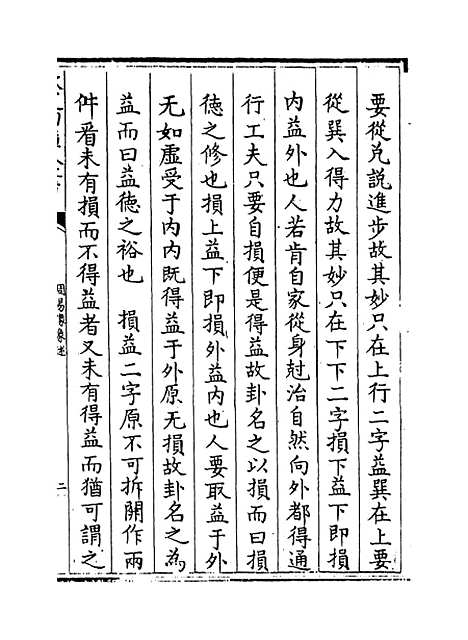 要從兌說進步故其妙只在上行二字益巽在上要
從巽入得力故其妙只在下下二字損下益下即損
內益外也人若肯自家從身尅治自然向外都得通
行工夫只要自損便是得益故卦名之以損而曰損
徳之修也損上益下即損外益內也人要取益于外
无如虛受于内内既得益于外原无損故卦名之為
益而曰益徳之裕也　損益二字原不可拆開作兩
件看未有損而不得益者又未有得益而猶可謂之
周易像象述
二